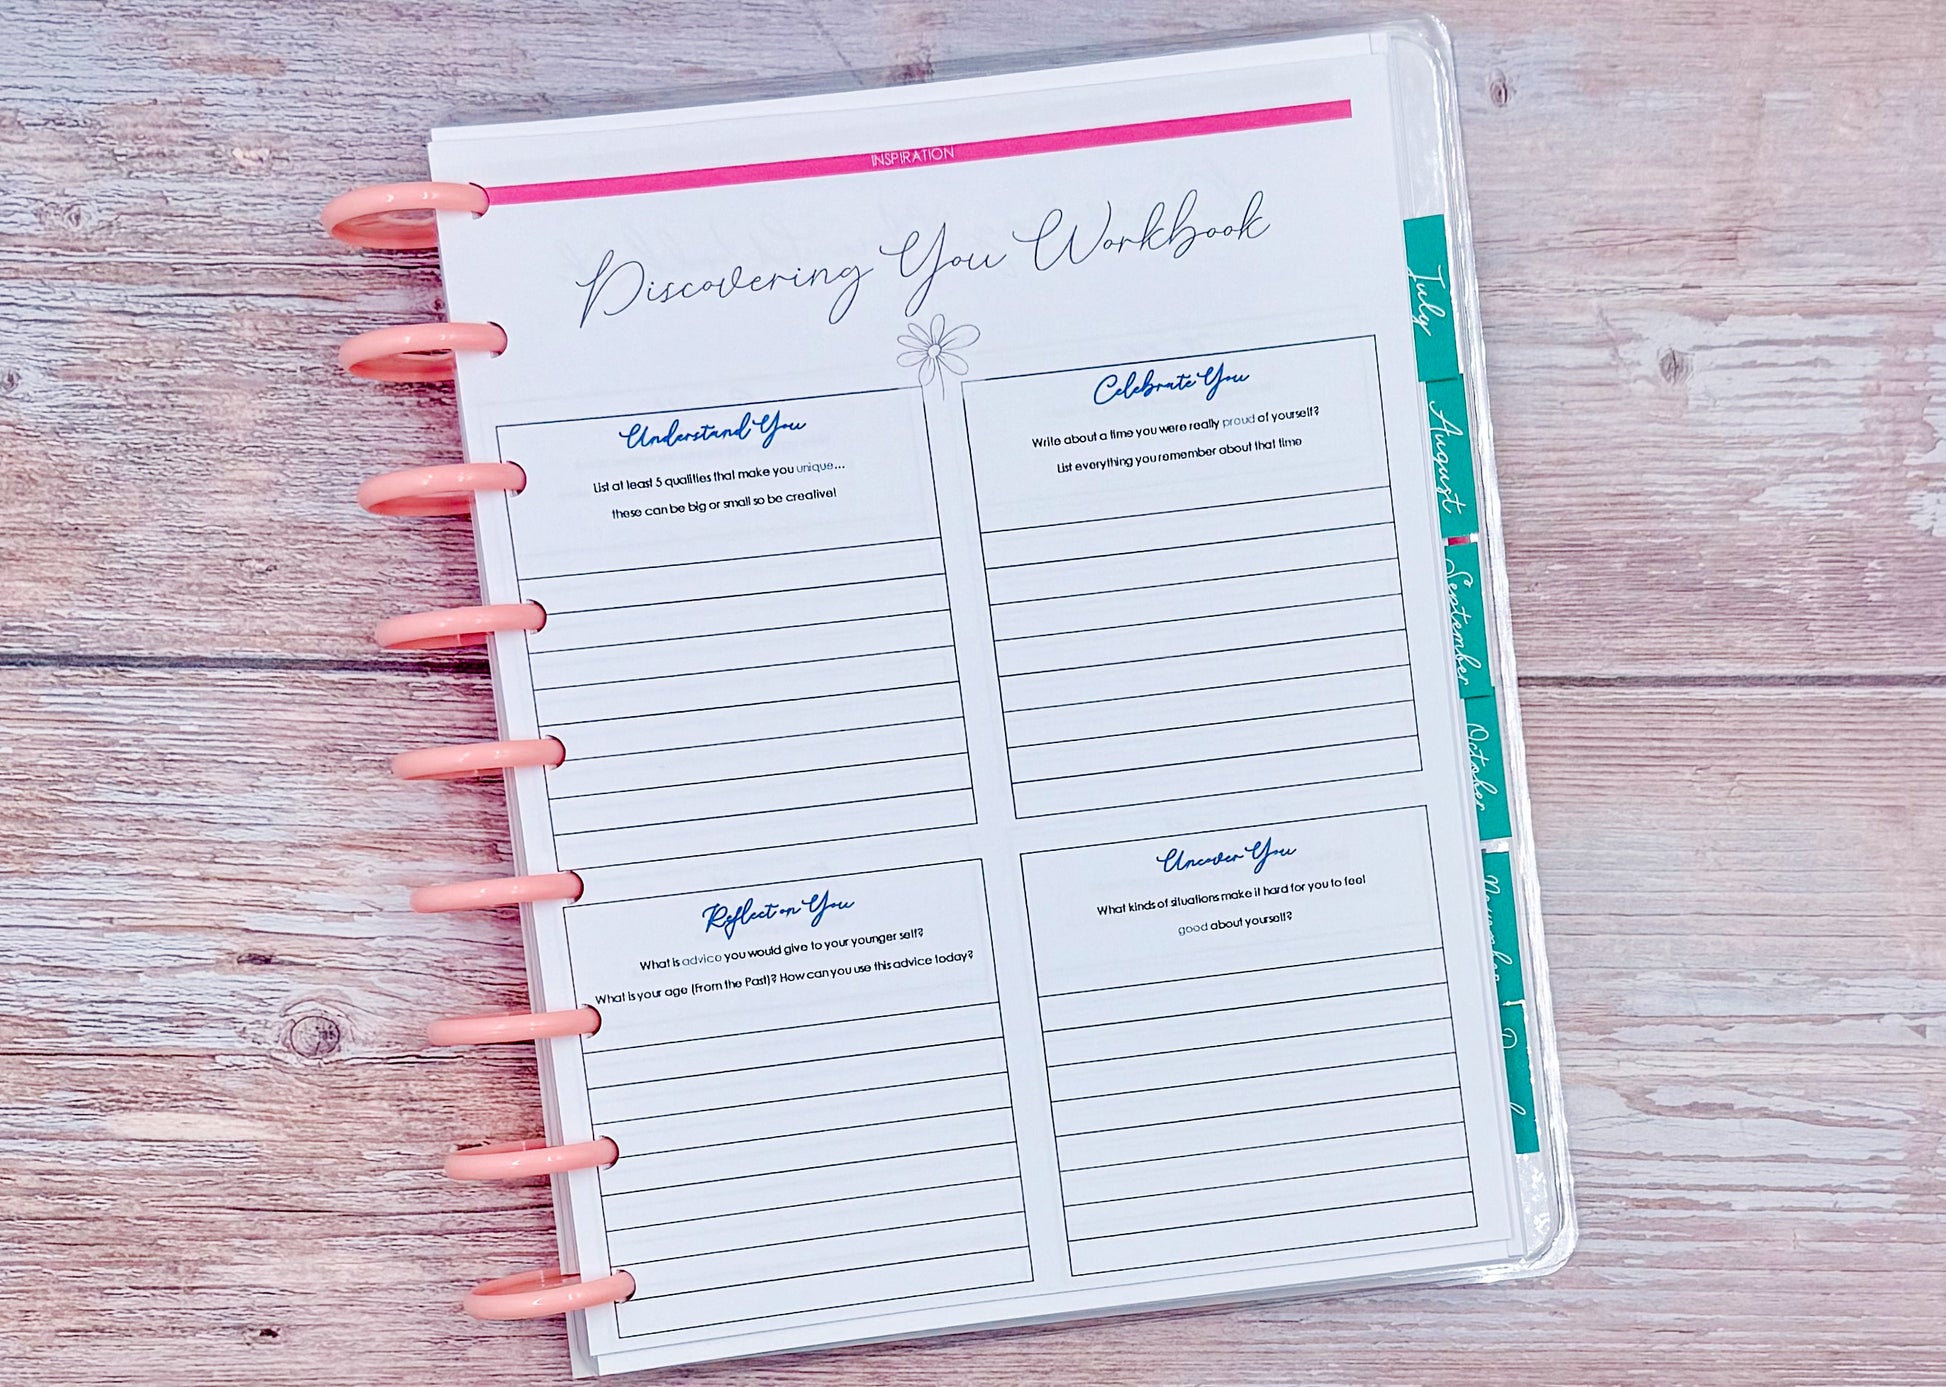 INSPIRATION
Discovering You Workbook
Understand You
List at least 5 qualities that make you unique...
these can be big or small so be creative!
Celebrate You
Write about a time you were really proud of yourself?
List everything you remember about that time
Reflect on You
What is advice you would give to your younger self?
What is your age (From the Past)? How can you use this advice today?
Uncover You
What kinds of situations make it hard for you to feel
good about yourself?
July
August
September
October
November